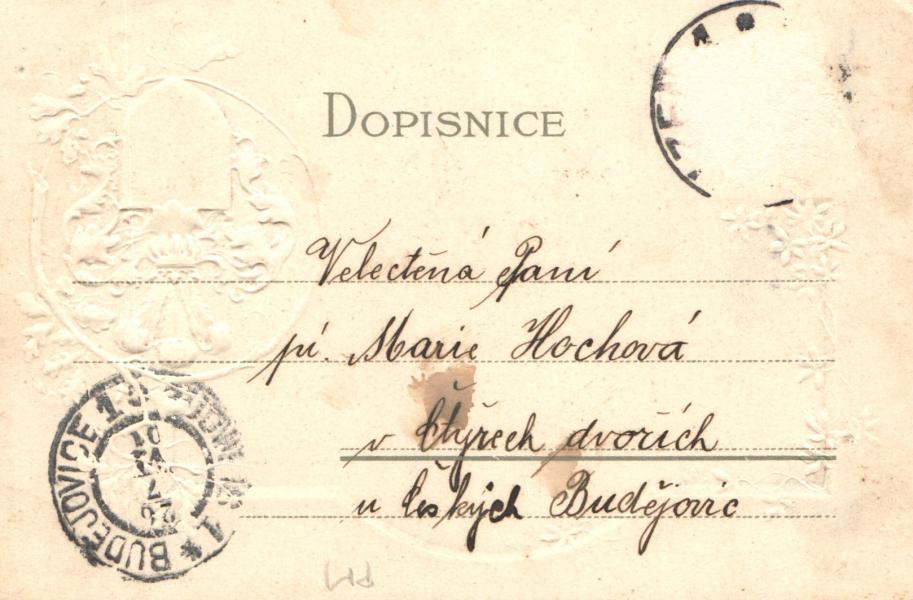 DOPISNICE
Velectěná Paní
pí. Marie Hochová
v Čtyřech dvořích
u Českých Budějovic
BUDĚJOVICE 1